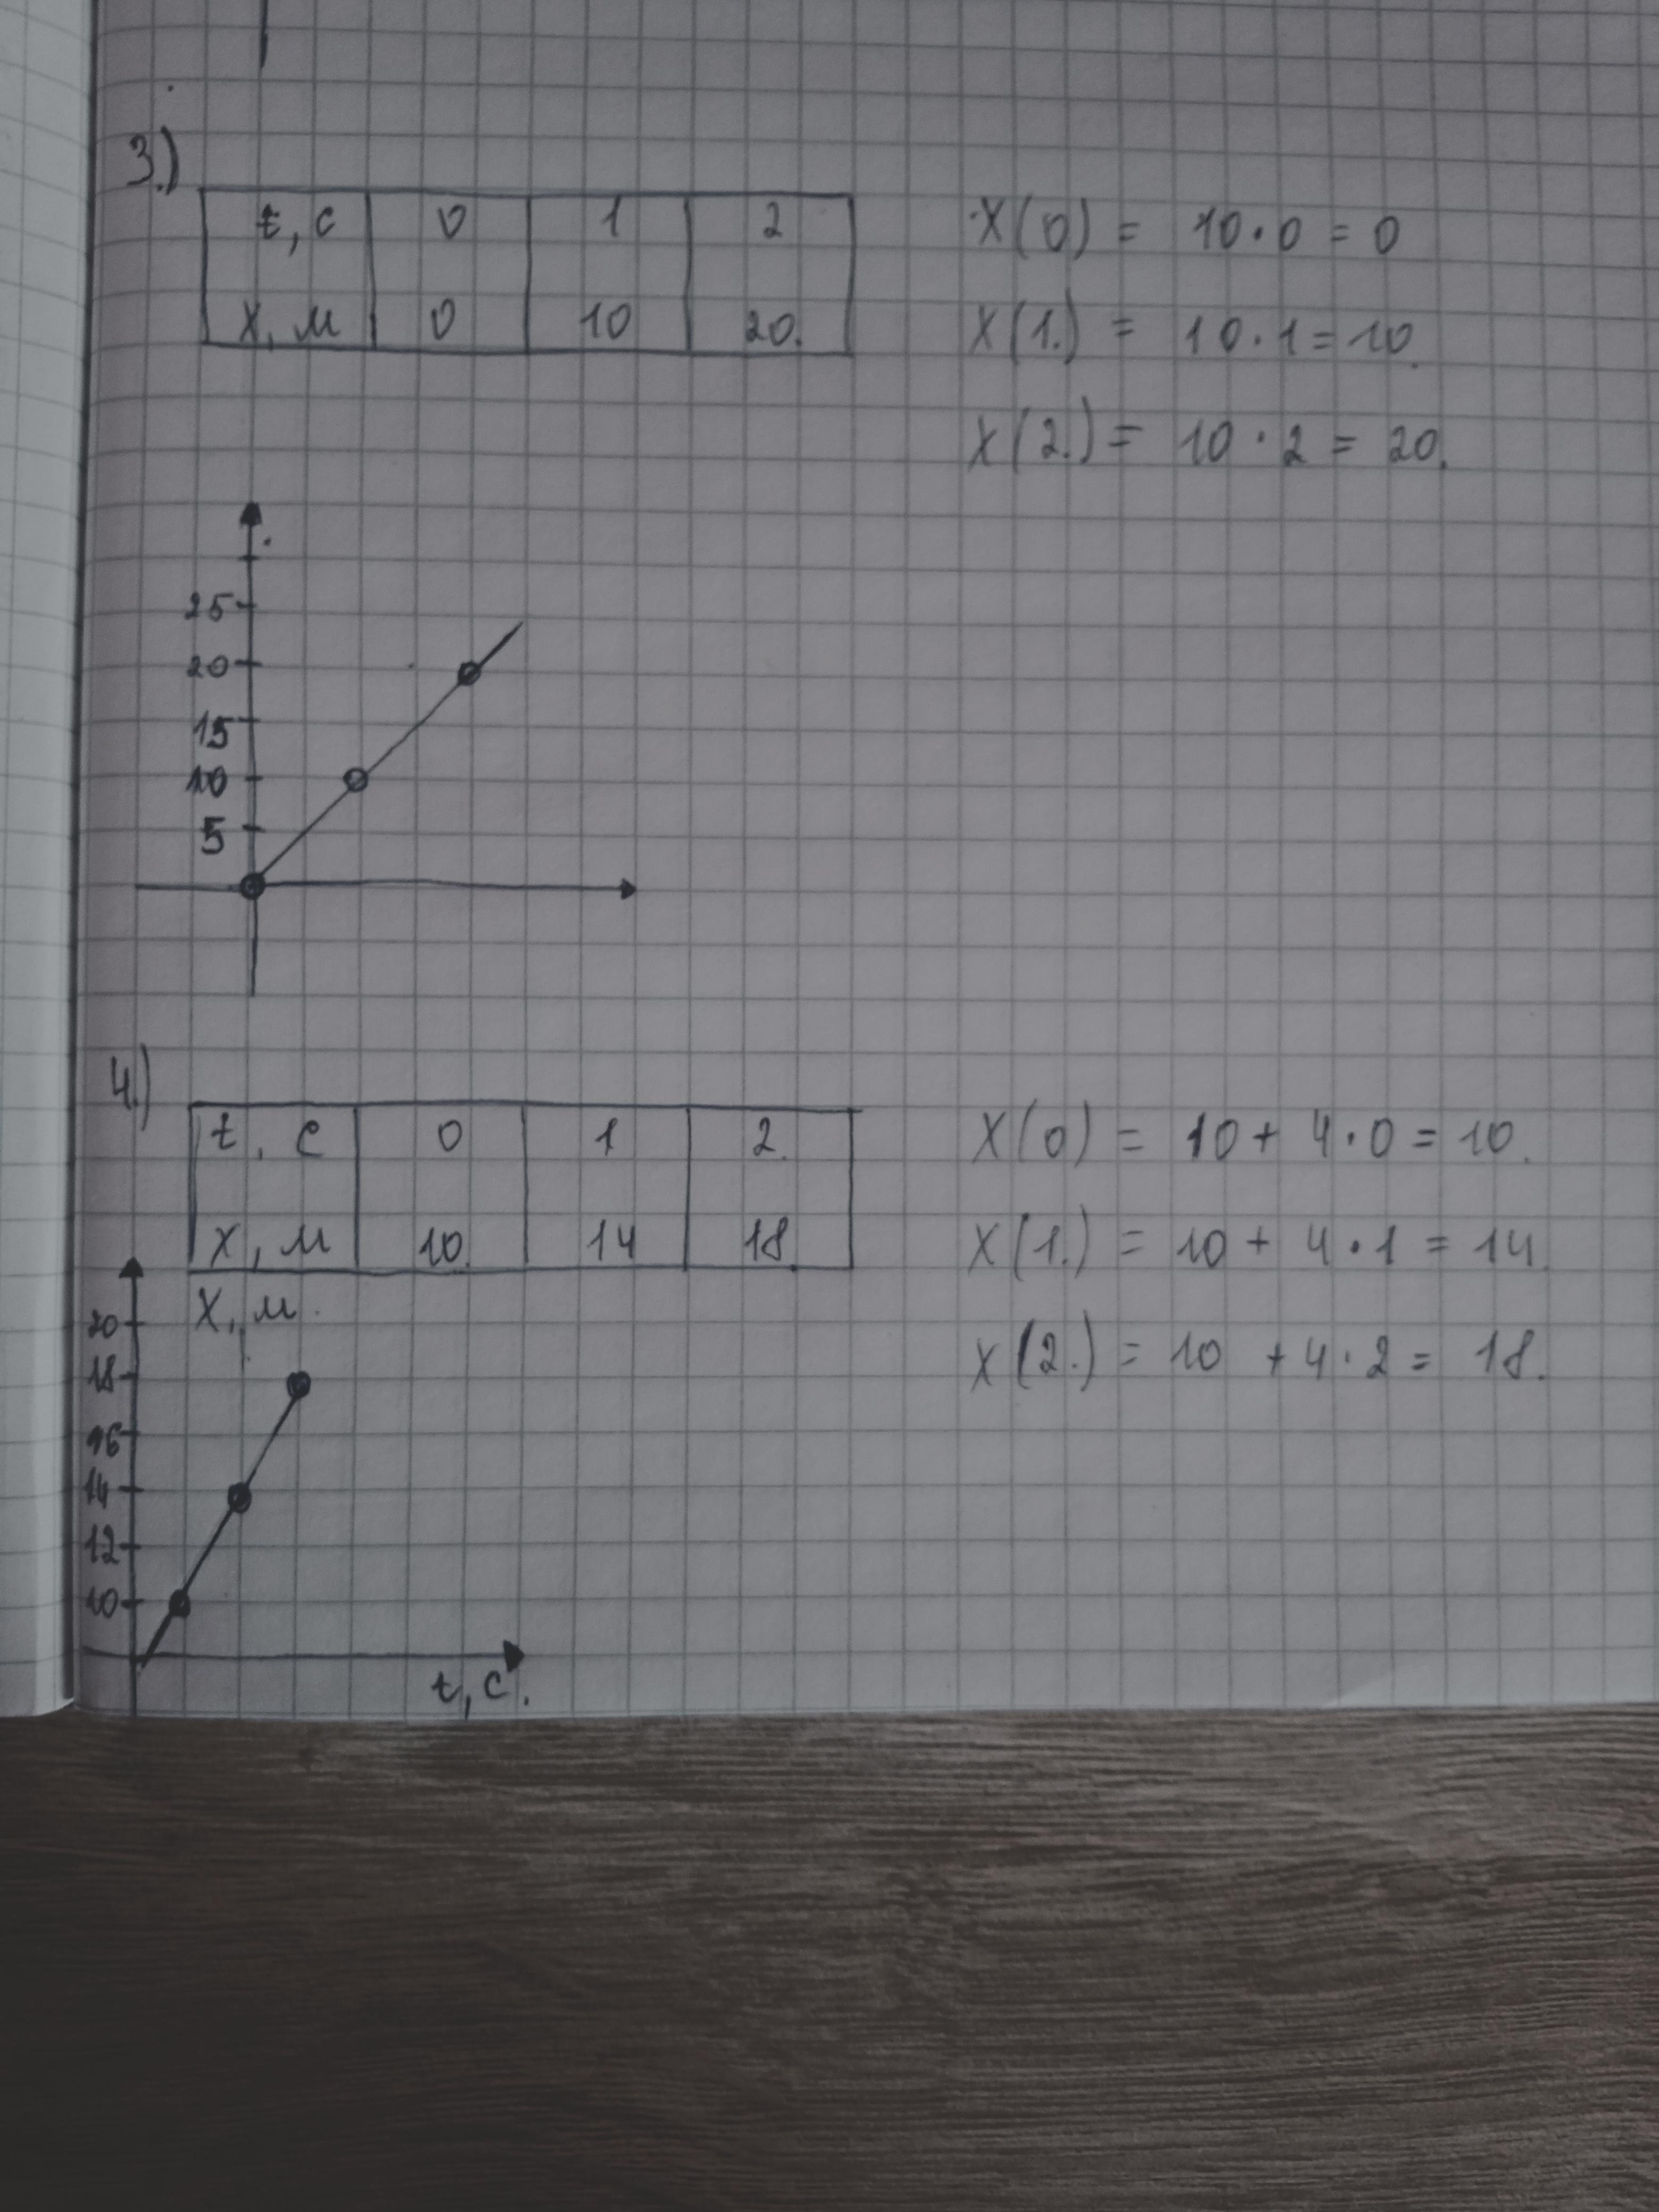 3.)
t, c 0 1 2
x, м 0 10 20.
X(0) = 10·0 = 0
X(1.) = 10·1 = 10.
X(2.) = 10·2 = 20.
25
20
15
10
5
4.)
t, c 0 1 2.
x, м 10. 14 18.
X(0) = 10 + 4·0 = 10.
X(1.) = 10 + 4·1 = 14.
X(2.) = 10 + 4·2 = 18.
X, м.
20
18
16
14
12
10
t, c.